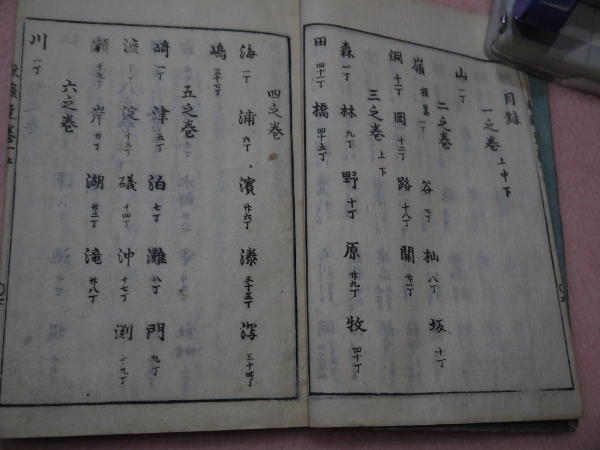 目録
一之巻 上中下
山 一丁
二之巻
嶺 谷 七丁 杣 八丁 坂 十丁
洞 十一丁 岡 十二丁 路 十八丁 關 廿一丁
三之巻 上下
森 一丁 林 九丁 野 十丁 原 廿九丁 牧 四十丁
田 四十一丁 橋 四十五丁
四之巻
海 一丁 浦 六丁 濱 廿六丁 三十三丁 三十四丁
嶋 三十七丁
五之巻
崎 一丁 津 五丁 泊 七丁 灘 八丁 門 九丁
渡 淀 十三丁 礒 十四丁 沖 十七丁 渕
瀬 岸 廿丁 湖 廿二丁 滝 廿八丁
六之巻
川 一丁